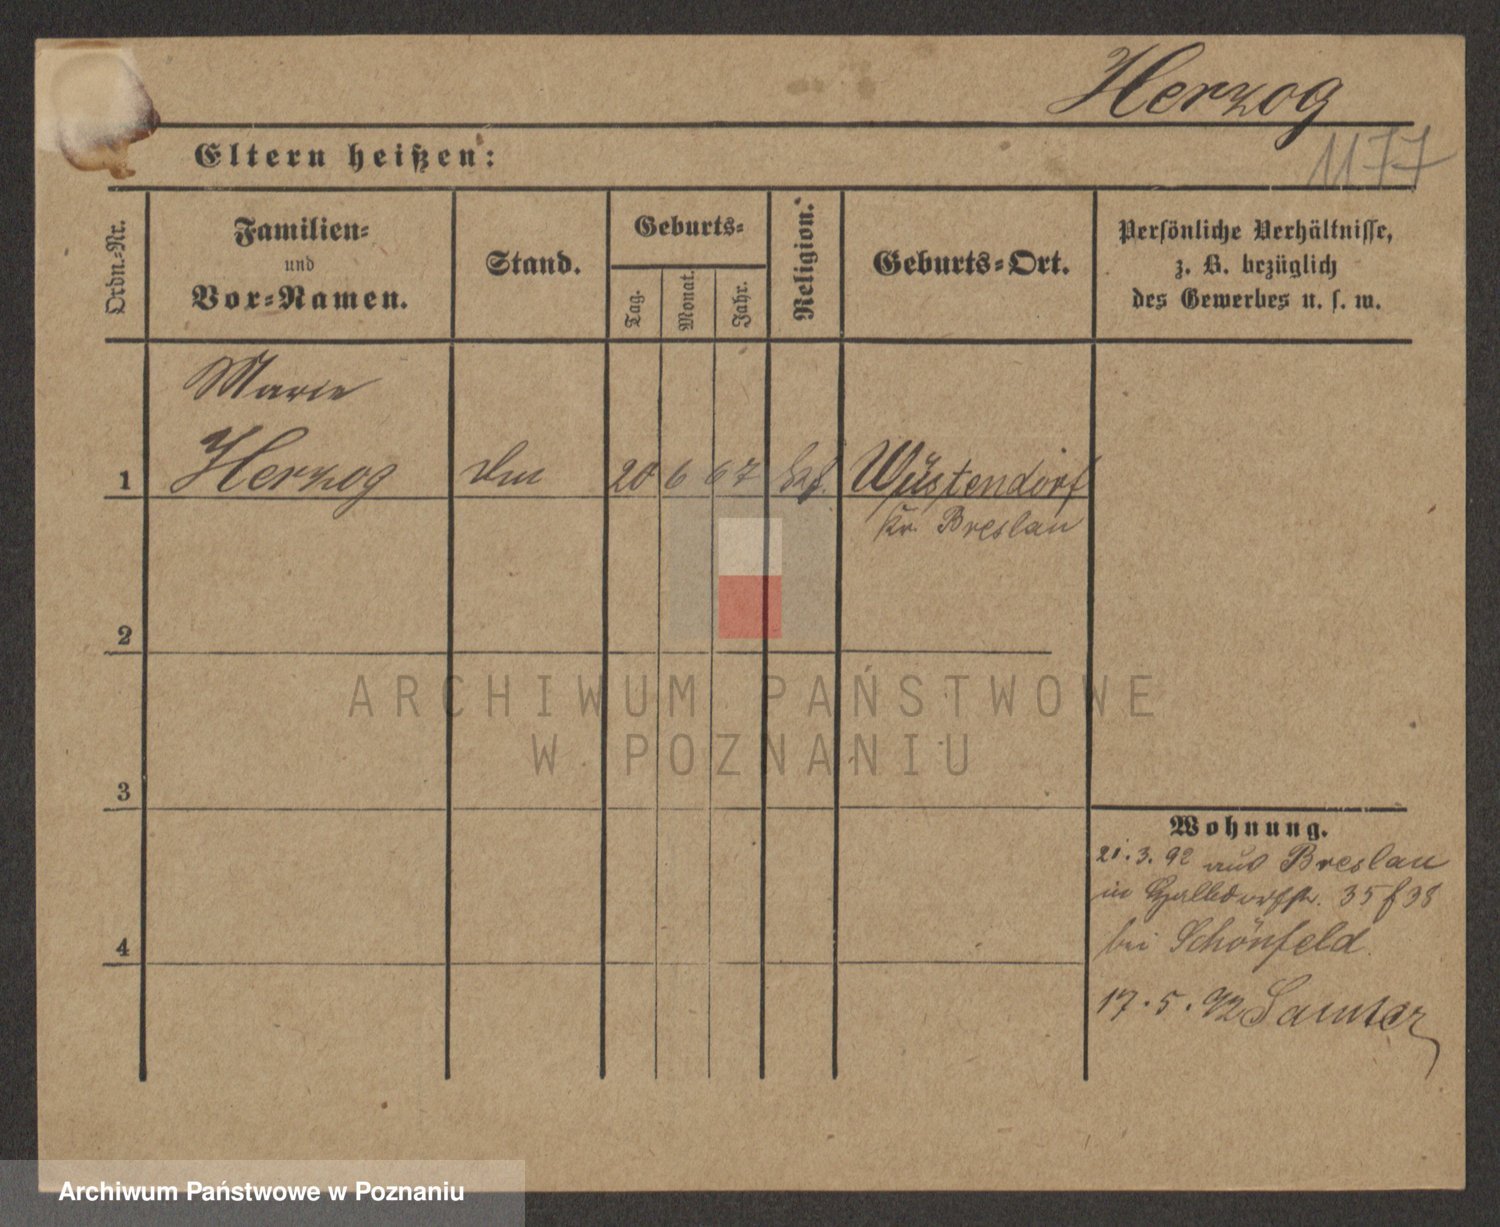 Herzog
1177
Eltern heißen:
Ordn.-Nr.
Familien-
und
Vor-Namen.
Stand.
Geburts-
Tag.
Monat.
Jahr.
Religion.
Geburts-Ort.
Persönliche Verhältnisse,
z. B. bezüglich
des Gewerbes u. s. w.
Marie
1 Herzog 20 6 67 Wüstendorf
Kr. Breslau
2
3
4
Wohnung.
21.3.92 aus Breslau
in 35 38
bei Schönfeld.
17.5.92 Samter
ARCHIWUM PAŃSTWOWE
W POZNANIU
Archiwum Państwowe w Poznaniu